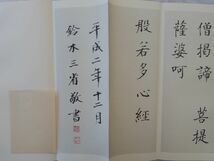 僧揭諦　菩提
薩婆呵
般若多心経
平成二年十二月
鈴木三省敬書